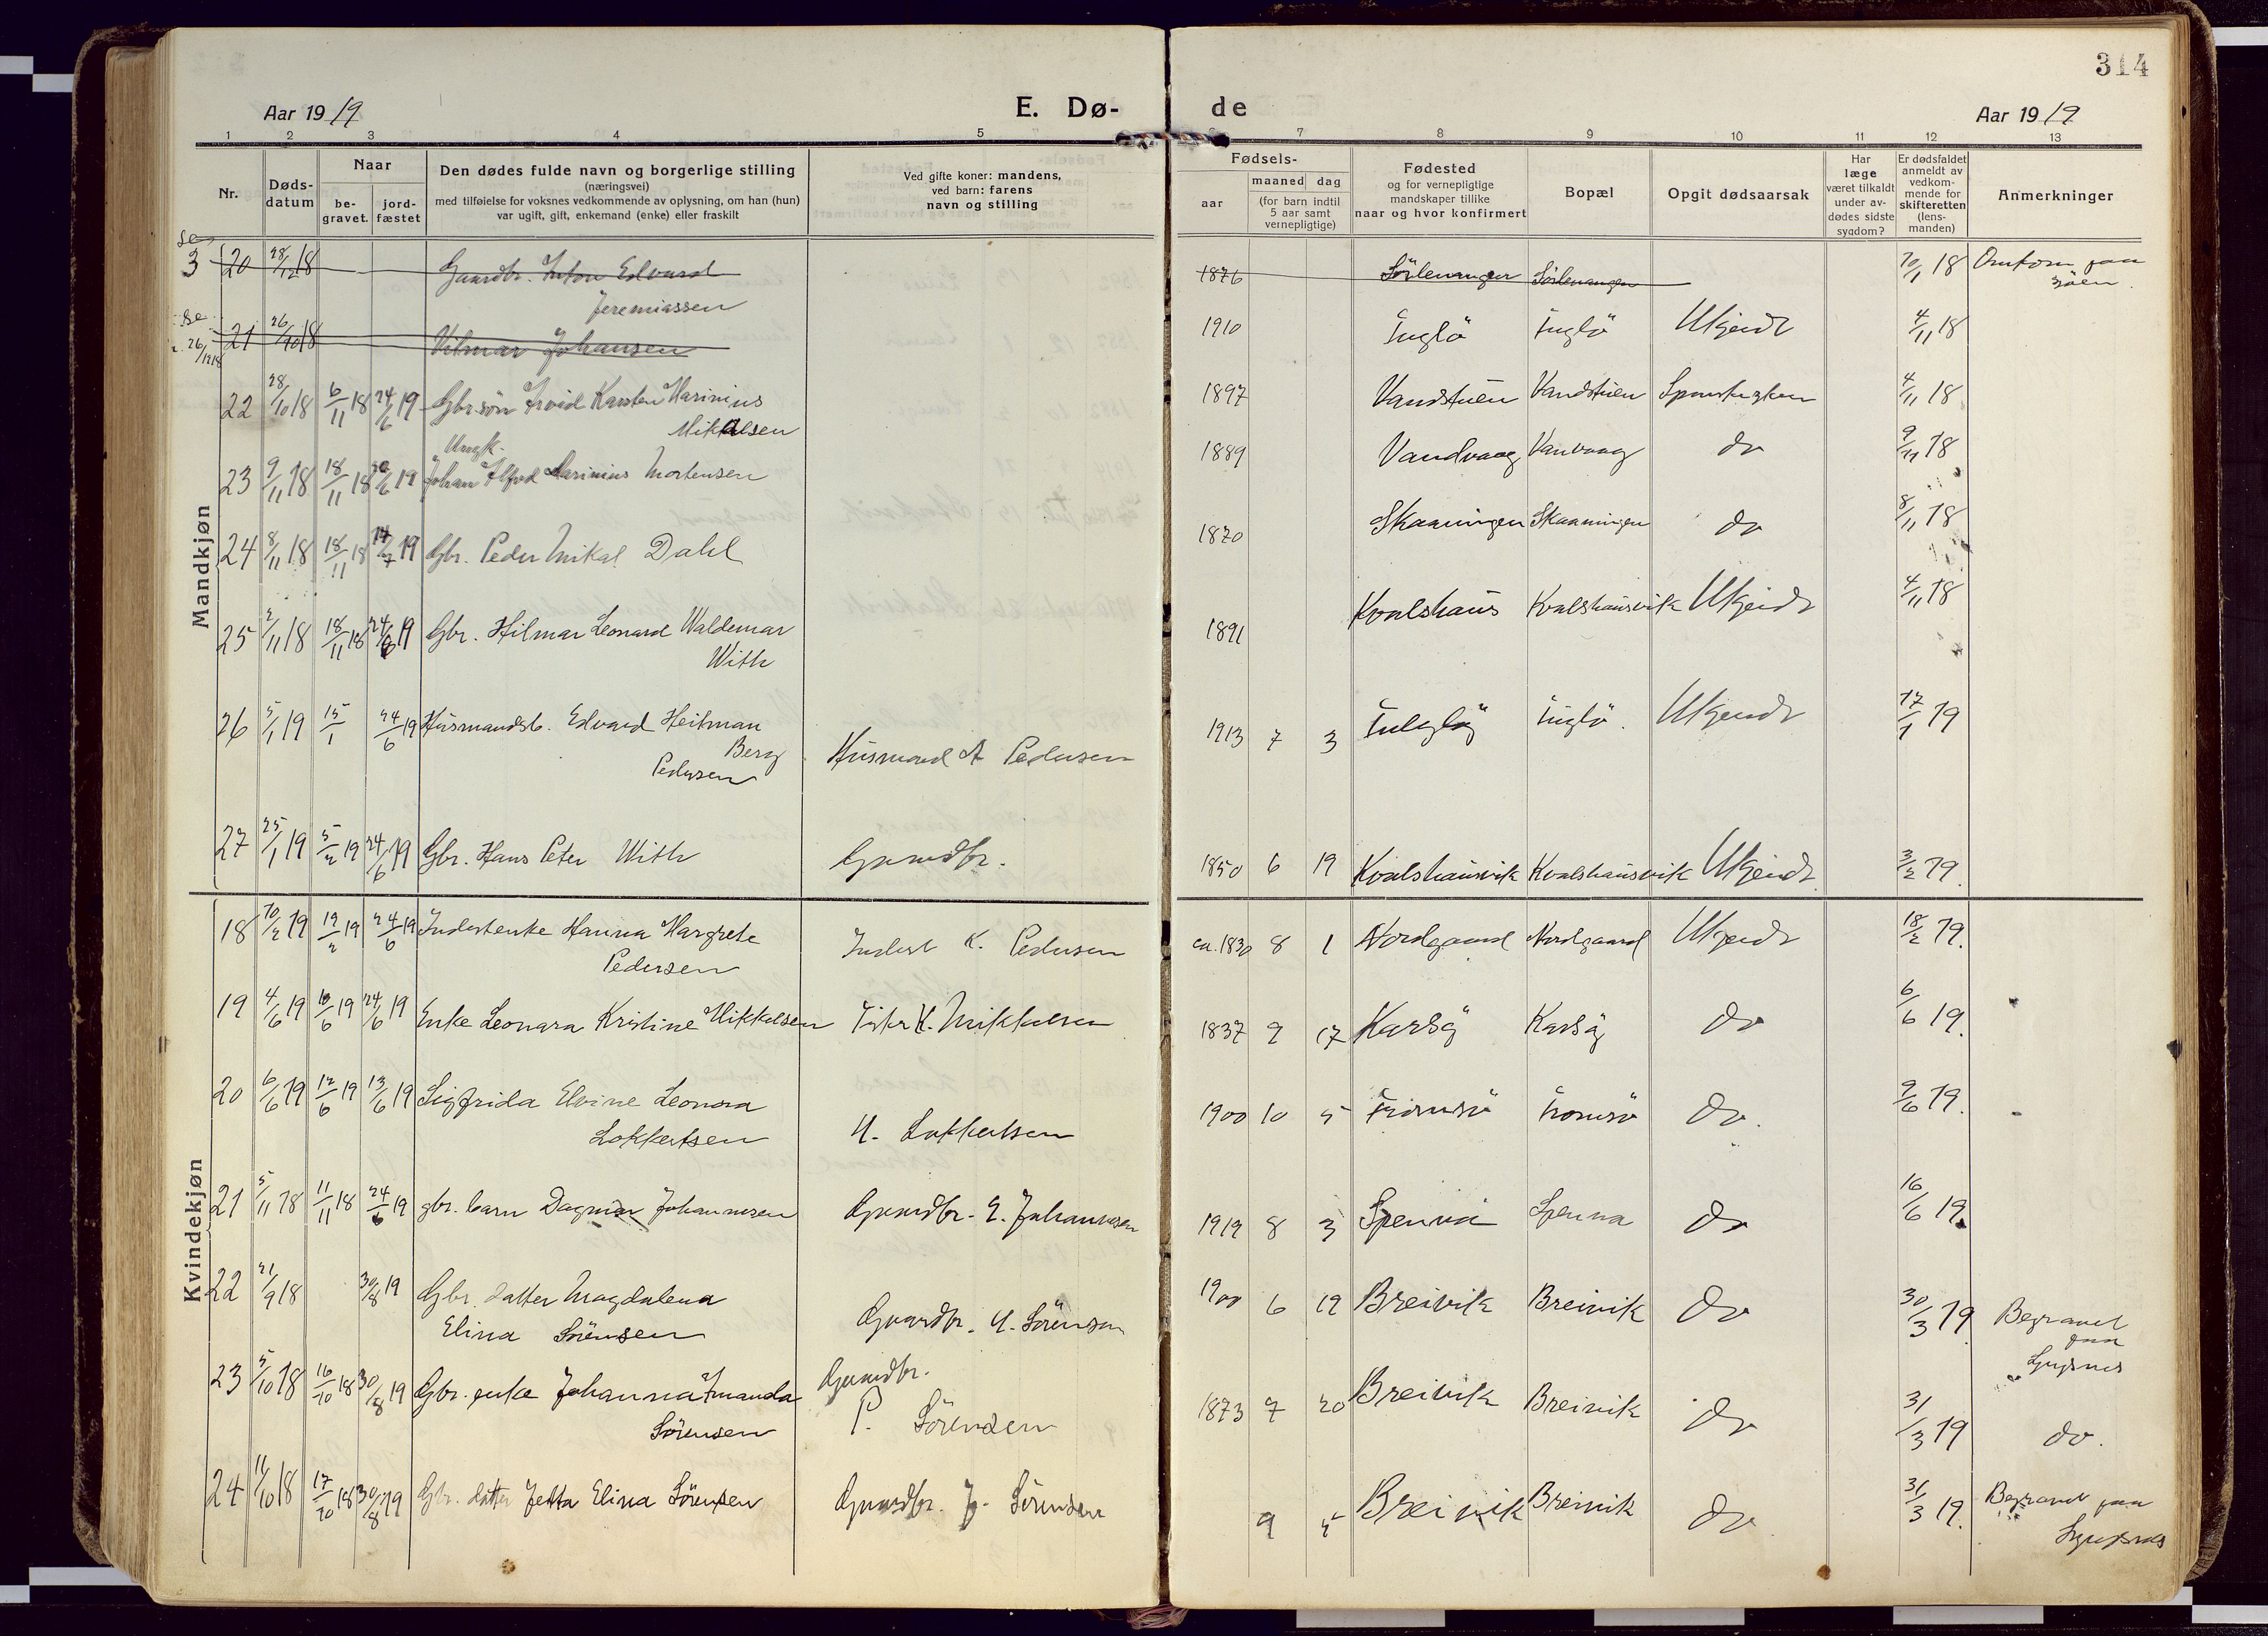 314
Aar 1919
E. Dø-
de
Aar 1919
1 2 3 4 5 6 7 8 9 10 11 12 13
Nr.
Døds-
datum
Naar
be-
gravet.
jord-
fæstet
Den dødes fulde navn og borgerlige stilling
(næringsvei)
med tilføielse for voksnes vedkommende av oplysning, om han (hun)
var ugift, gift, enkemand (enke) eller fraskilt
Ved gifte koner: mandens,
ved barn: farens
navn og stilling
Fødsels-
aar
maaned dag
(for barn indtil
5 aar samt
vernepligtige)
Fødested
og for vernepligtige
mandskaper tillike
naar og hvor konfirmert
Bopæl
Opgit dødsaarsak
Har
læge
været tilkaldt
under av-
dødes sidste
sygdom?
Er dødsfaldet
anmeldt av
vedkom-
mende for
skifteretten
(lens-
manden)
Anmerkninger
Mandkjøn
se
3 20 28/12 18 Gaardbr. Anton Edvard
Jeremiassen
1876 Sörlenangen Sörlenangen 18 Omkom paa
sjöen.
se
21 26/10 18 Vilmar Johansen
1910 4/11 18
22 28/10 18 6/11 18 24/6 19 Gbr sön Arvid Karsten Marinius
Mikkelsen
1897 Vandstuen Vandstuen 4/11 18
Ungk.
23 9/11 18 18/11 18 19 Johan Alfred Marinius Mortensen
1889 Vandvaag Vanvaag do 9/11 18
24 8/11 18 18/11 18 19 Gbr. Peder Mikal Dahl
1870 Skaaningen Skaaningen do 8/11 18
25 2/11 18 18/11 18 19 Gbr. Hilmar Leonard Waldemar
With
1891 Kvalshaus Kvalshausvik Ukjendt 4/11 18
26 5/1 19 15/1 24/6 19 Husmandsb. Edvard Heitman
Berg
Pedersen
Husmand A Pedersen
1913 7 3 Ukjendt 17/1 19
27 25/1 19 5/2 19 24/6 19 Gbr. Hans Peter With
Gaardbr.
1850 6 19 Kvalshausvik Kvalshausvik Ukjendt 3/2 19.
Kvindekjøn
18 10/2 19 19/2 19 24/6 19 Inderstenke Hanna Margrete
Pedersen
Inderst K. Pedersen
ca. 1830 8 1 Nordgaard Nordgaard Ukjendt 18/2 19.
19 4/6 19 10/6 19 24/6 19 Enke Leonara Kristine Mikkelsen
Fisker K. Mikkelsen
1837 9 17 Karlsöy Karlsöy do 6/6 19.
20 6/6 19 12/6 19 13/6 19 Sigfrida Elvine Leonora
Lokkertsen
Lokkertsen
1900 10 5 Tromsö Tromsö do. 9/6 19.
21 5/11 18 11/11 18 24/6 19 gbr. barn Dagmar Johannesen
Gaardbr. E. Johannesen
1919 8 3 Spenna Spenna do 16/6 19.
22 21/9 18 30/8 19 Gbr. datter Magdalena
Elina Sörensen
Gaardbr. Sörensen
1900 6 19 Breivik Breivik do 30/3 19 Begravet
paa
23 5/10 18 16/10 18 30/8 19 Gbr. enke Johanna Amanda
Sörensen
Gaardbr.
P. Sörensen
1873 7 20 Breivik Breivik do 31/3 19 do.
24 11/10 18 17/10 18 30/8 19 Gbr. datter Jetta Elina Sörensen
Gaardbr. P. Sörensen
9 5 Breivik Breivik do 31/3 19. Begravet paa